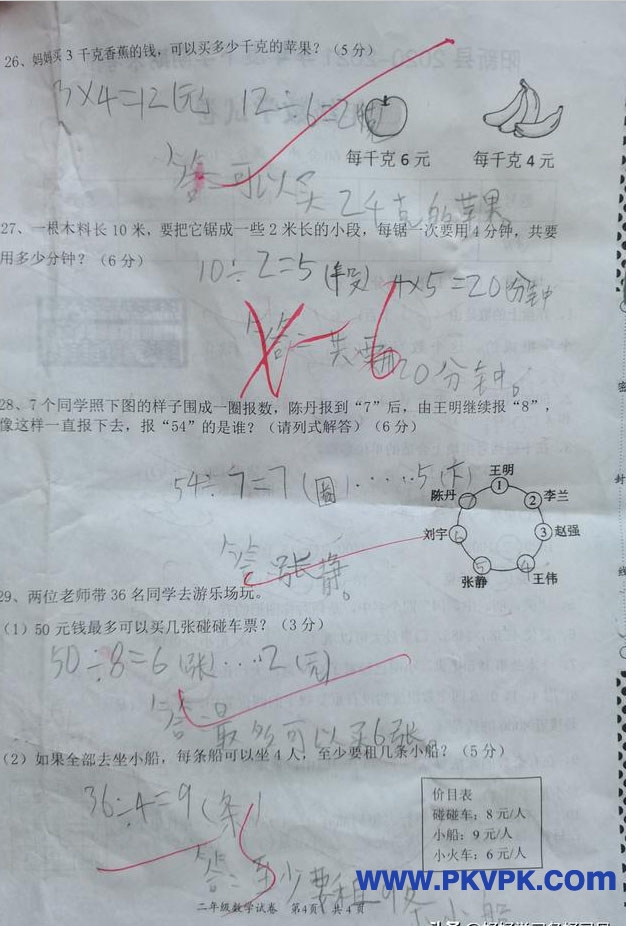 26、妈妈买 3 千克香蕉的钱，可以买多少千克的苹果？（5 分）
3×4=12(元) 12÷6=2
每千克 6 元 每千克 4 元
答：可以买2千克的苹果。
27、一根木料长 10 米，要把它锯成一些 2 米长的小段，每锯一次要用 4 分钟，共要
用多少分钟？（6 分）
10÷2=5(段) 4×5=20(分钟)
答：共要用20分钟。
28、7 个同学照下图的样子围成一圈报数，陈丹报到“7”后，由王明继续报“8”，
像这样一直报下去，报“54”的是谁？（请列式解答）（6 分）
54÷7=7(圈)·····5(个)
王明
陈丹 1 2 李兰
刘宇 6 3 赵强
5 4
张静 王伟
答：张静。
29、两位老师带 36 名同学去游乐场玩。
（1）50 元钱最多可以买几张碰碰车票？（3 分）
50÷8=6(张)····2(元)
答：最多可以买6张。
（2）如果全部去坐小船，每条船可以坐 4 人，至少要租几条小船？（5 分）
36÷4=9(条)
价目表
碰碰车：8 元/人
小船：9 元/人
小火车：6 元/人
答：至少要租9条小船
WWW.PKVPK.COM
二年级数学试卷 第4页 共 4 页